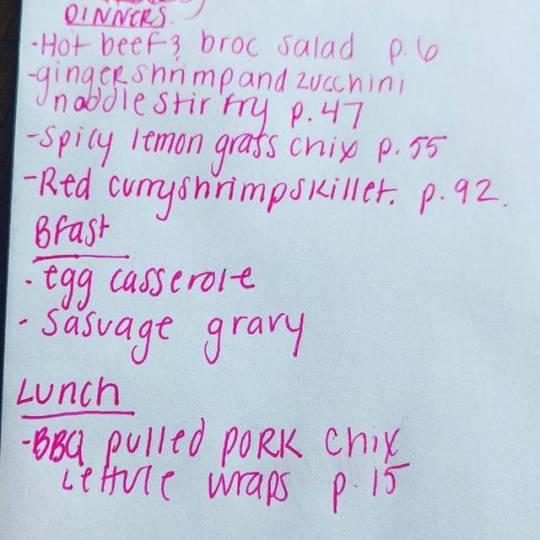 DINNERS
-Hot beef & broc salad p.6
-ginger shrimp and zucchini
noddle stir fry p.47
-Spicy lemon grass chix p.55
-Red curry shrimp skillet. p.92.
Bfast
- egg casserole
- Sasvage gravy
Lunch
-BBQ pulled pork chix
Lettuce wraps p.15